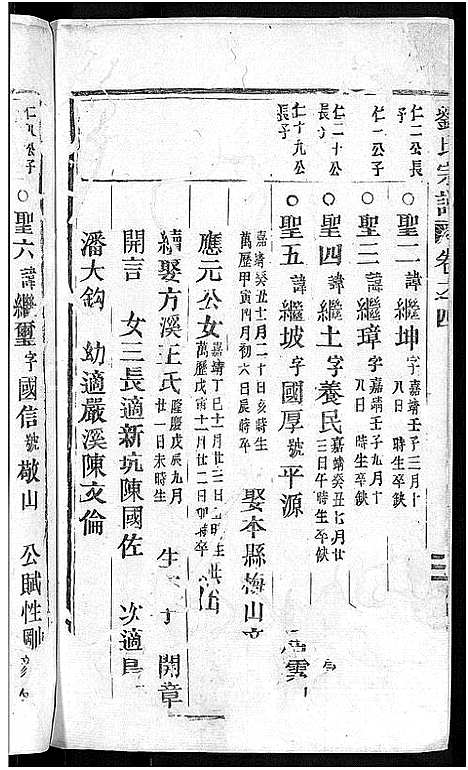 劉氏宗譜 卷之四
三
仁二公長子
○聖二 諱繼坤 字 嘉靖壬子三月十八日 時生卒缺
仁一公子
○聖三 諱繼璋 字 嘉靖壬子九月十八日 時生卒缺
仁二十公長子
○聖四 諱繼土 字養民 嘉靖癸丑七月廿三日午時生卒缺
仁十九公長子
○聖五 諱繼坡 字國厚 號平源
嘉靖癸丑十二月二十日亥時生
萬歷甲寅四月初六日辰時卒
娶本縣梅山
應元公女 嘉靖丁巳十二月廿三日
萬歷戊寅十二月廿二日卯時卒
續娶方溪王氏 隆慶戊辰九月廿一日未時生
生 子
開章
開言
女三長適新坑陳國佐
次適
潘大鈞
幼適嚴溪陳文倫
仁 公子
○聖六 諱繼璽 字國信 號敬山
公賦性剛